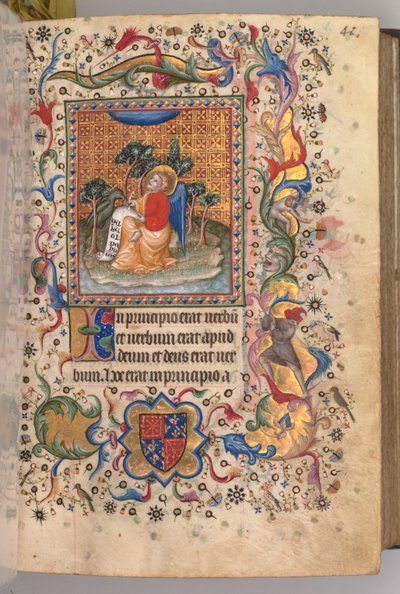 42.
In principio erat verbū
et verbum erat apud
deum et deus erat ver
bum. Hoc erat in principio a